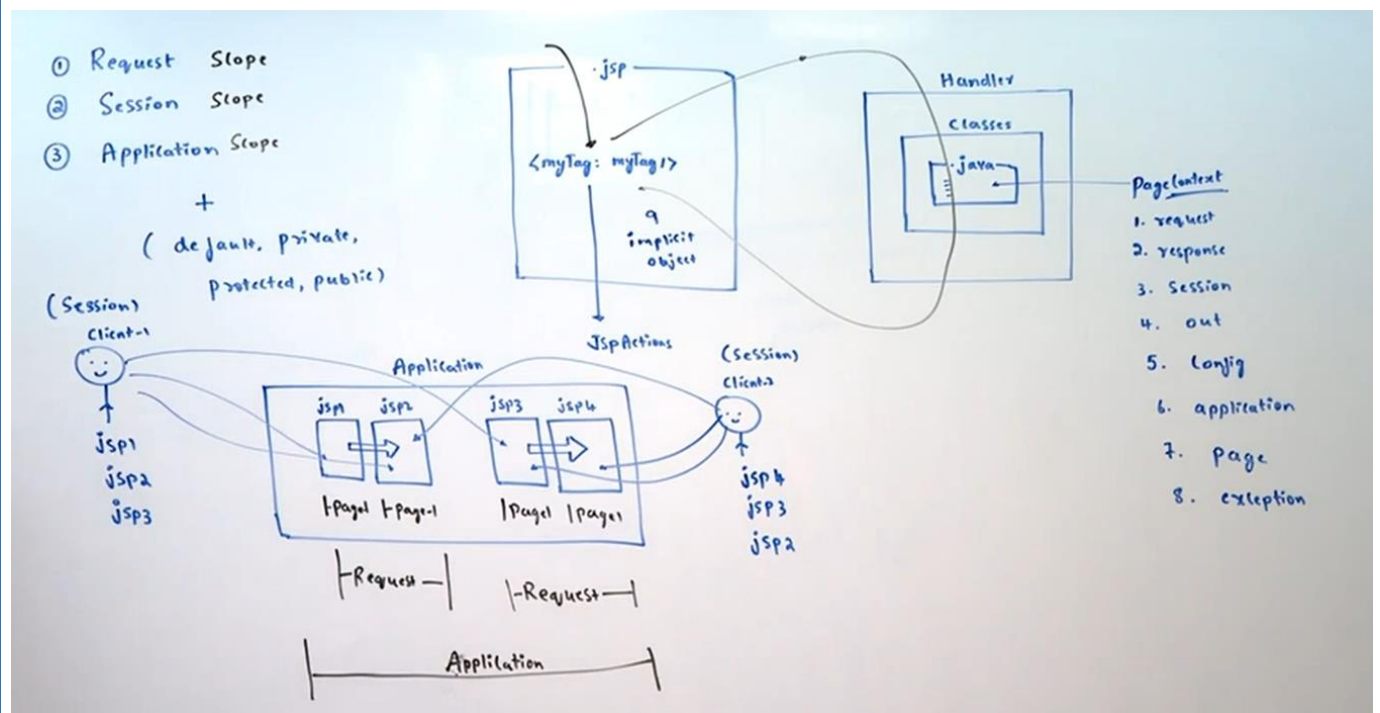 ① Request Scope
② Session Scope
③ Application Scope
+
( default, private,
protected, public)
.jsp
<myTag: myTag1>
9
implicit
object
JspActions
Handler
Classes
.java
PageContext
1. request
2. response
3. Session
4. out
5. Config
6. application
7. page
8. exception
(Session)
Client-1
jsp1
jsp2
jsp3
Application
jsp1 jsp2 jsp3 jsp4
|page| |-page-| |page| |page|
|-Request-| |-Request-|
Application
(Session)
Client-2
jsp4
jsp3
jsp2